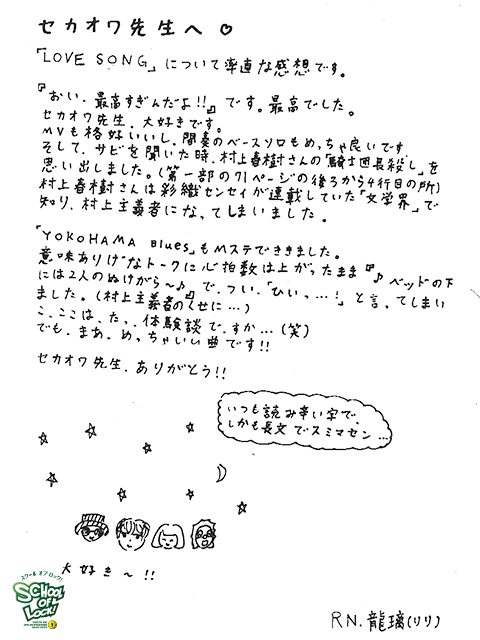 セカオワ先生へ♡
「LOVE SONG」について率直な感想です。
『おい、最高すぎんだよ!!』です。最高でした。
セカオワ先生、大好きです。
MVも格好いいし、間奏のベースソロもめっちゃ良いです
そして、サビを聞いた時、村上春樹さんの「騎士団長殺し」を
思い出しました。(第一部の71ページの後ろから4行目の所)
村上春樹さんは彩織センセイが連載していた「文学界」で
知り、村上主義者になってしまいました。
「YOKOHAMA blues」もMステでききました。
意味ありげなトークに心拍数は上がったまま『♪ベッドの下
には2人のぬけがら〜♪』で、つい、「ひいっ…!」と言ってしまい
ました。(村上主義者のくせに…)
こ、ここは、たっ、体験談で、すか…(笑)
でも、まあ、めっちゃいい曲です!!
セカオワ先生、ありがとう!!
いつも読み辛い字で、
しかも長文でスミマセン…
大好き〜!!
スクールオブロック!
SCHOOL
OF
LOCK!
RN.龍璃(リリ)